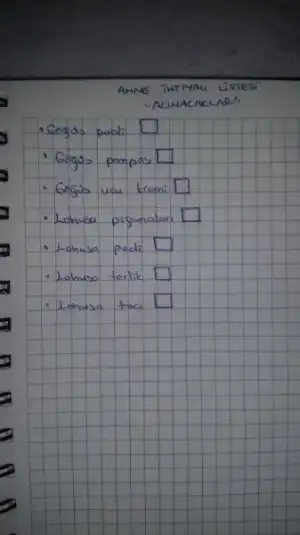 ANNE İHTİYAÇ LİSTESİ
"ALINACAKLAR"
• Göğüs pedi
• Göğüs pompası
• Göğüs ucu kremi
• Lohusa pijamaları
• Lohusa pedi
• Lohusa terlik
• Lohusa tacı